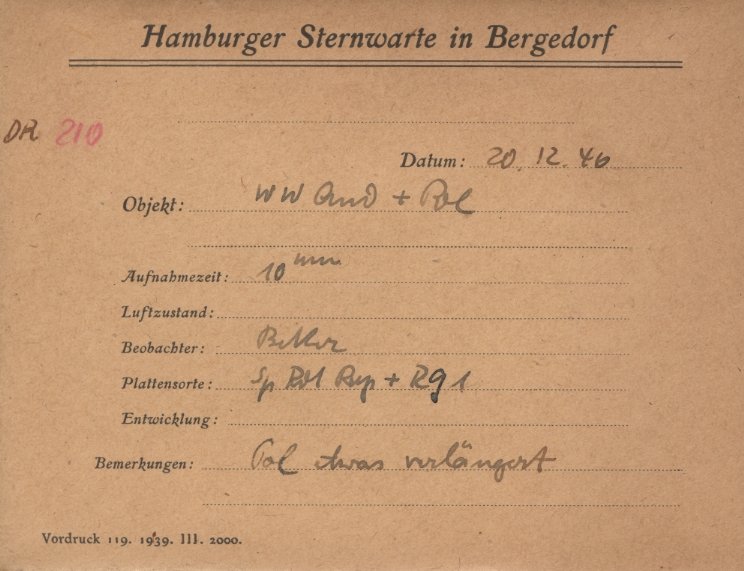 Hamburger Sternwarte in Bergedorf
DR 210
Datum: 20. 12. 46
Objekt: WW And + Pol
Aufnahmezeit: 10 min
Luftzustand:
Beobachter:
Plattensorte: Rot + Rg 1
Entwicklung:
Bemerkungen: Pol etwas verlängert
Vordruck 119. 1939. III. 2000.